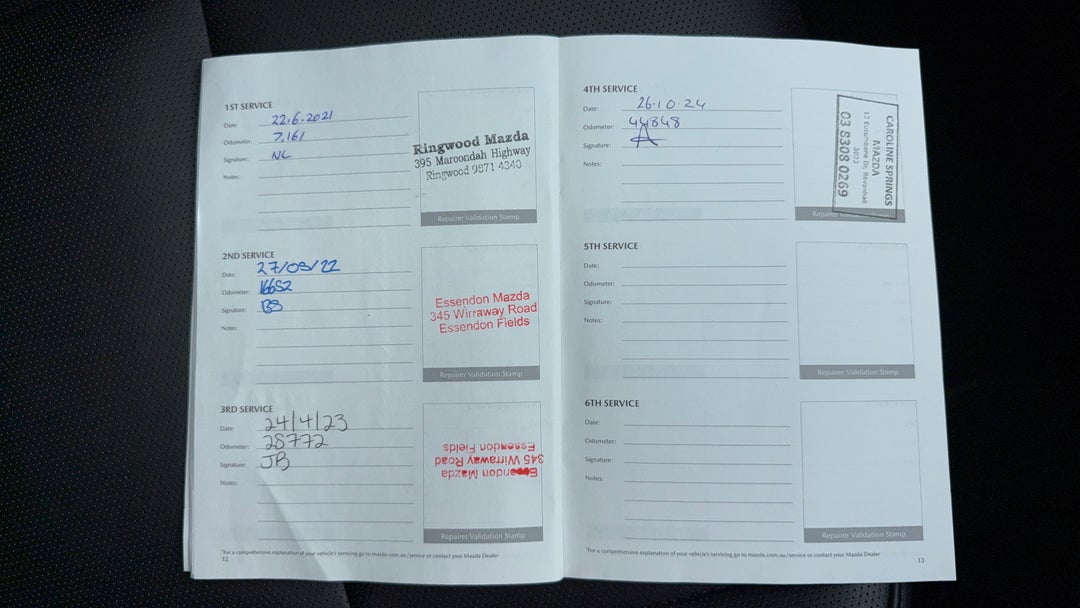 1ST SERVICE
Date: 22.6.2021
Odometer: 7,161
Signature: NL
Notes:
Ringwood Mazda
395 Maroondah Highway
Ringwood 9871 4340
Repairer Validation Stamp
2ND SERVICE
Date: 27/09/22
Odometer: 16652
Signature: BS
Notes:
Essendon Mazda
345 Wirraway Road
Essendon Fields
Repairer Validation Stamp
3RD SERVICE
Date: 24/4/23
Odometer: 28772
Signature: JB
Notes:
Essendon Mazda
345 Wirraway Road
Essendon Fields
Repairer Validation Stamp
*For a comprehensive explanation of your vehicle's servicing go to mazda.com.au/service or contact your Mazda Dealer
12
4TH SERVICE
Date: 26.10.24
Odometer: 44848
Signature:
Notes:
CAROLINE SPRINGS
MAZDA
12 Eucumbene Dr, Ravenhall
3023
03 8308 0269
Repairer Validation Stamp
5TH SERVICE
Date:
Odometer:
Signature:
Notes:
Repairer Validation Stamp
6TH SERVICE
Date:
Odometer:
Signature:
Notes:
Repairer Validation Stamp
*For a comprehensive explanation of your vehicle's servicing go to mazda.com.au/service or contact your Mazda Dealer
13